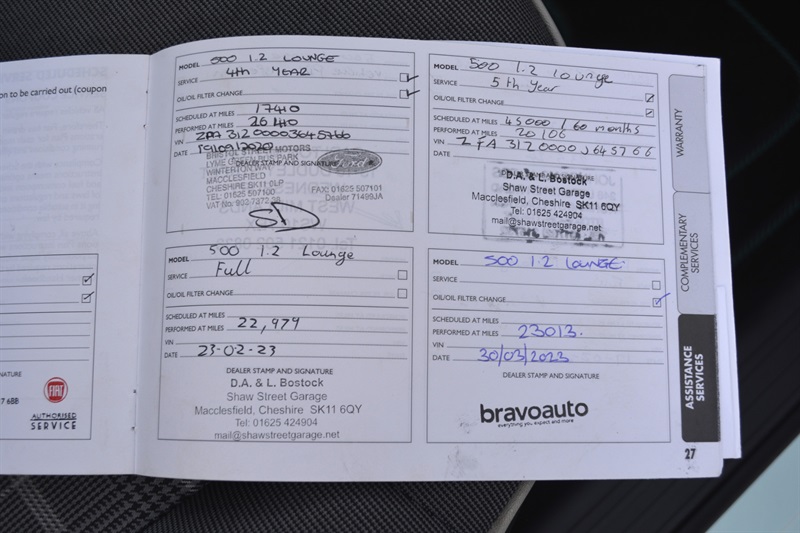 on to be carried out (coupon
NATURE
7 6BB
FIAT
AUTHORISED
SERVICE
MODEL 500 1.2 LOUNGE
SERVICE 4th YEAR
OIL/OIL FILTER CHANGE
SCHEDULED AT MILES 17410
PERFORMED AT MILES 26410
VIN ZFA3120000J645766
DATE 19/09/2020
BRISTOL STREET MOTORS
LYME GREEN BUS PARK
DEALER STAMP AND SIGNATURE
WINTERTON WAY
MACCLESFIELD
CHESHIRE SK11 0LP
TEL: 01625 507100
FAX: 01625 507101
Dealer 71499JA
Ford
MODEL 500 1.2 Lounge
SERVICE 5th Year
OIL/OIL FILTER CHANGE
SCHEDULED AT MILES 45000 / 60 months
PERFORMED AT MILES 20106
VIN ZFA3120000J645766
DATE
D.A. & L. Bostock
Shaw Street Garage
Macclesfield, Cheshire SK11 6QY
Tel: 01625 424904
mail@shawstreetgarage.net
MODEL 500 1.2 Lounge
SERVICE Full
OIL/OIL FILTER CHANGE
SCHEDULED AT MILES
PERFORMED AT MILES 22,979
VIN
DATE 23-02-23
DEALER STAMP AND SIGNATURE
D.A. & L. Bostock
Shaw Street Garage
Macclesfield, Cheshire SK11 6QY
Tel: 01625 424904
mail@shawstreetgarage.net
MODEL 500 1.2 LOUNGE.
SERVICE
OIL/OIL FILTER CHANGE
SCHEDULED AT MILES
PERFORMED AT MILES 23013.
VIN
DATE 30/03/2023
DEALER STAMP AND SIGNATURE
bravoauto
everything you expect and more
WARRANTY
COMPLEMENTARY
SERVICES
ASSISTANCE
SERVICES
27